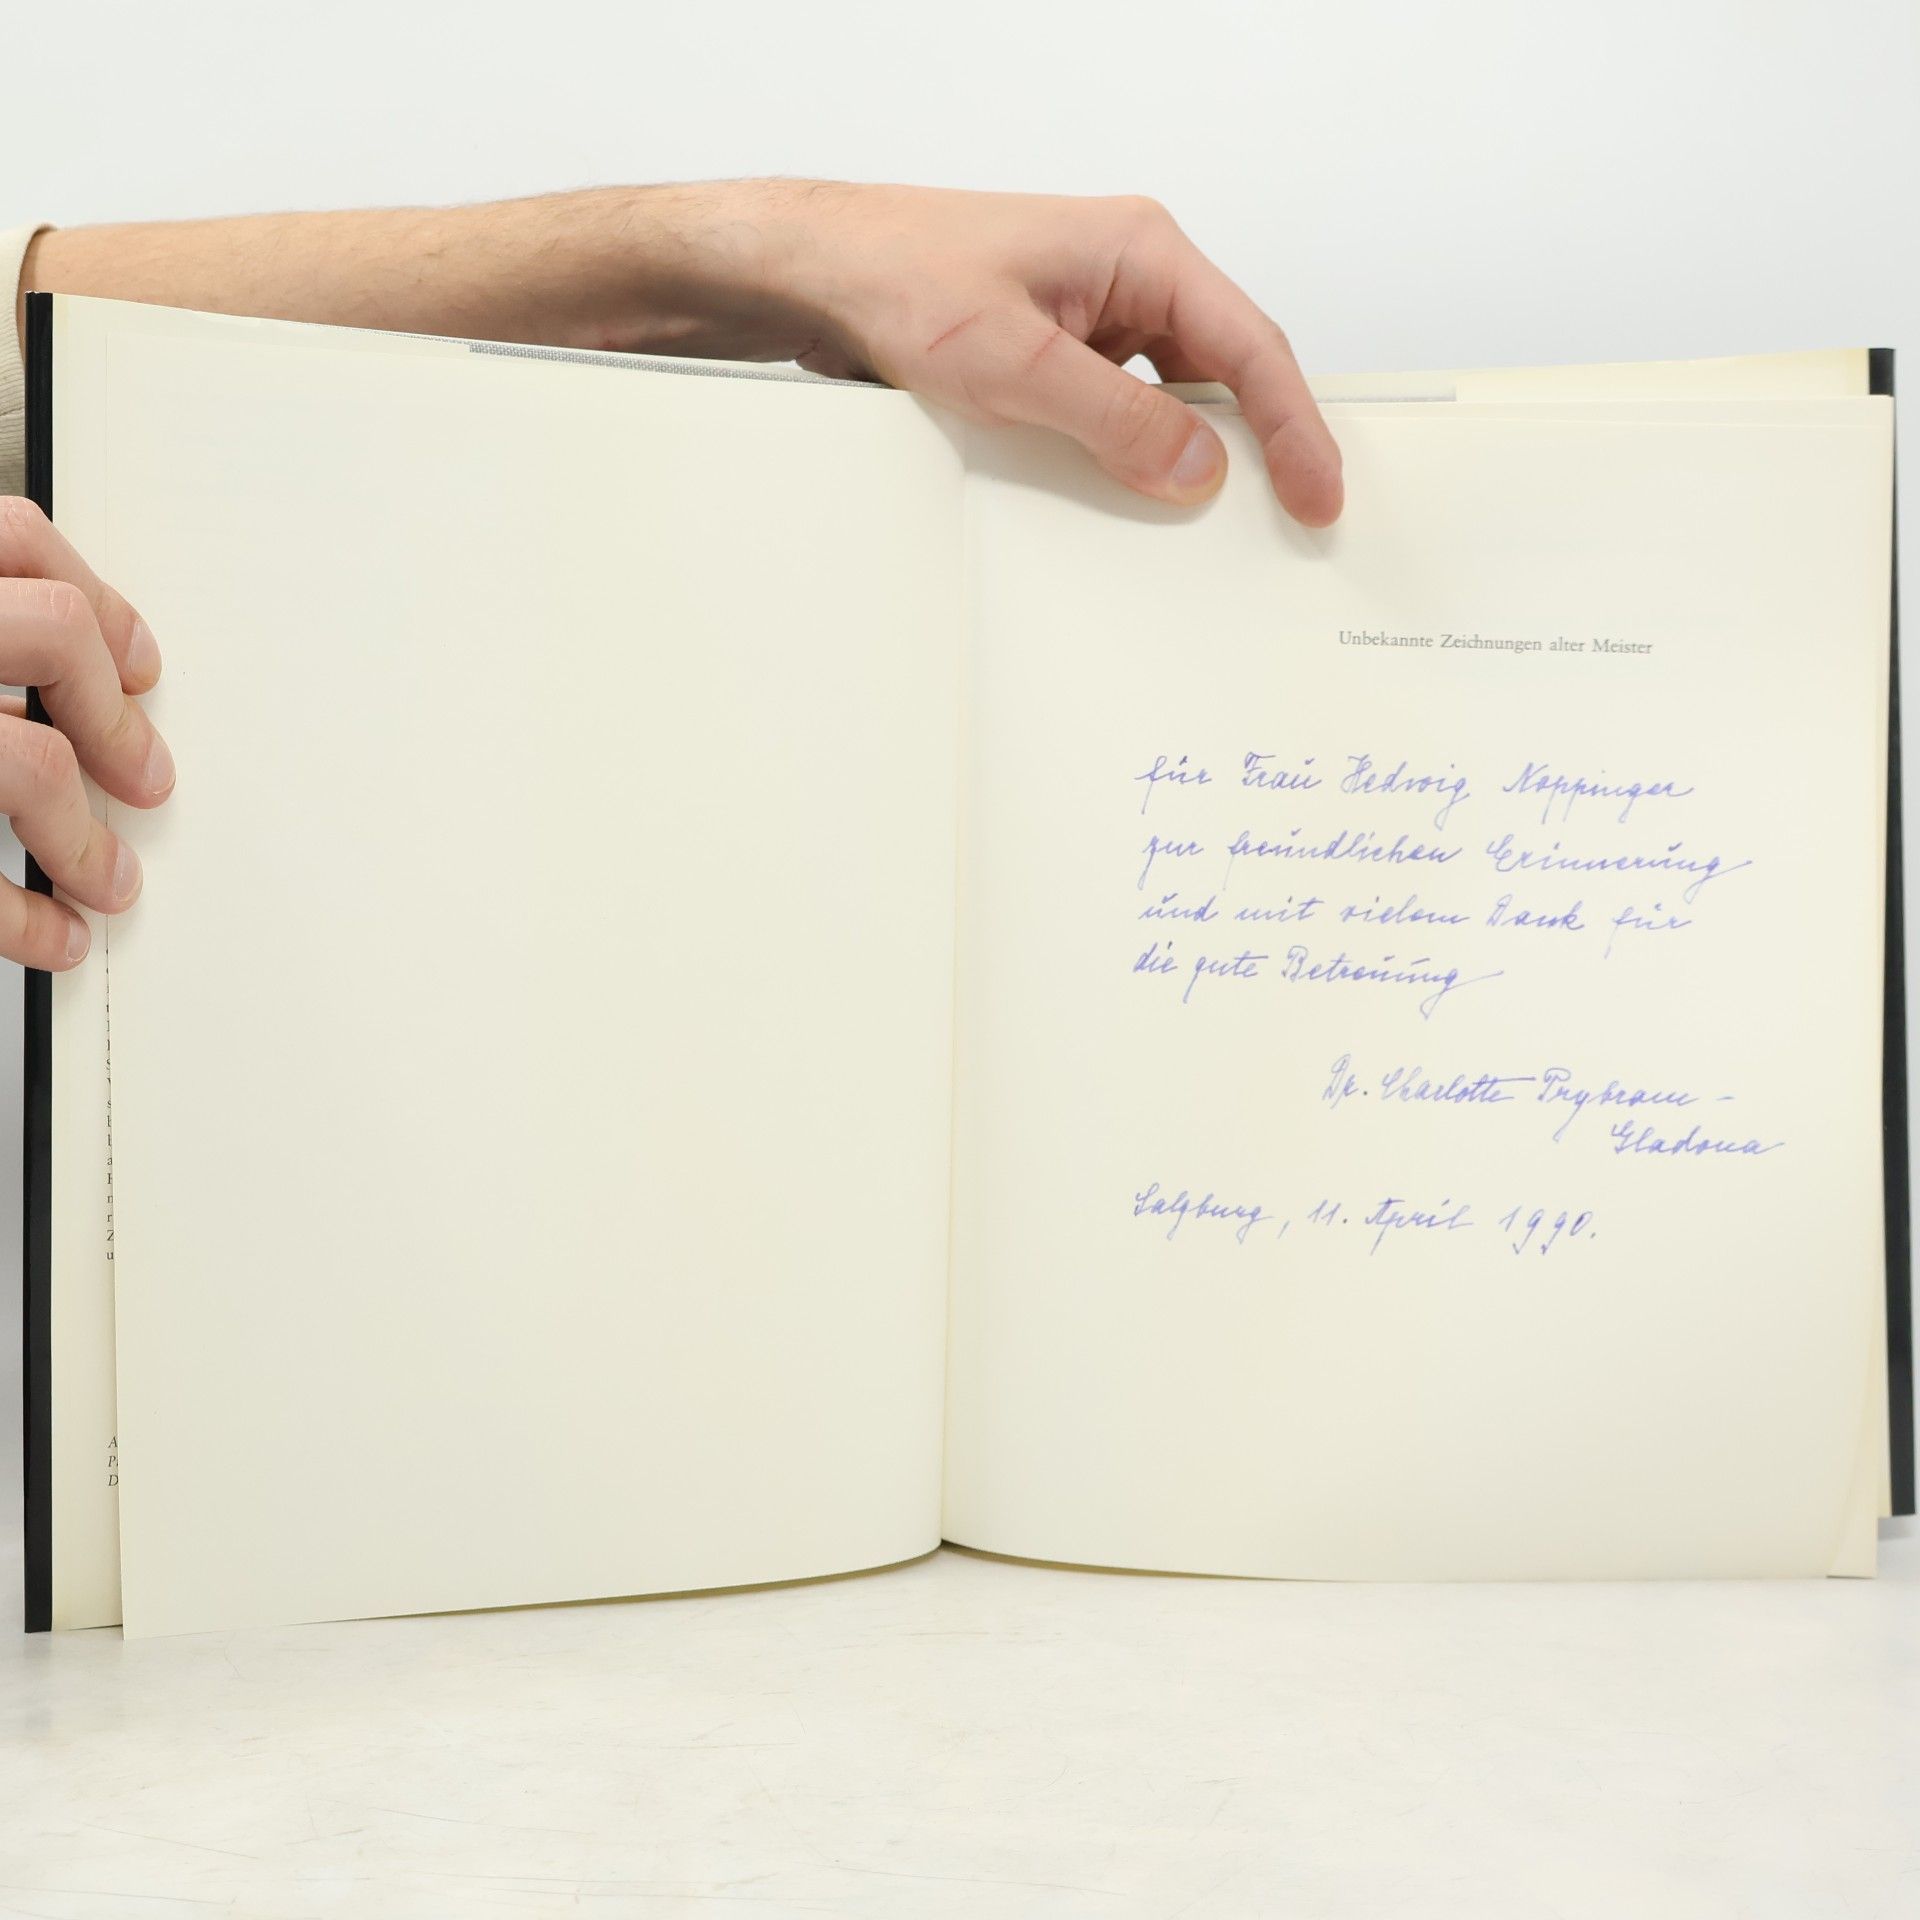 Unbekannte Zeichnungen alter Meister
für Frau Hedwig Noppinger
zur freundlichen Erinnerung
und mit vielem Dank für
die gute Betreuung
Dr. Charlotte Prybram -
Gladona
Salzburg, 11. April 1990.